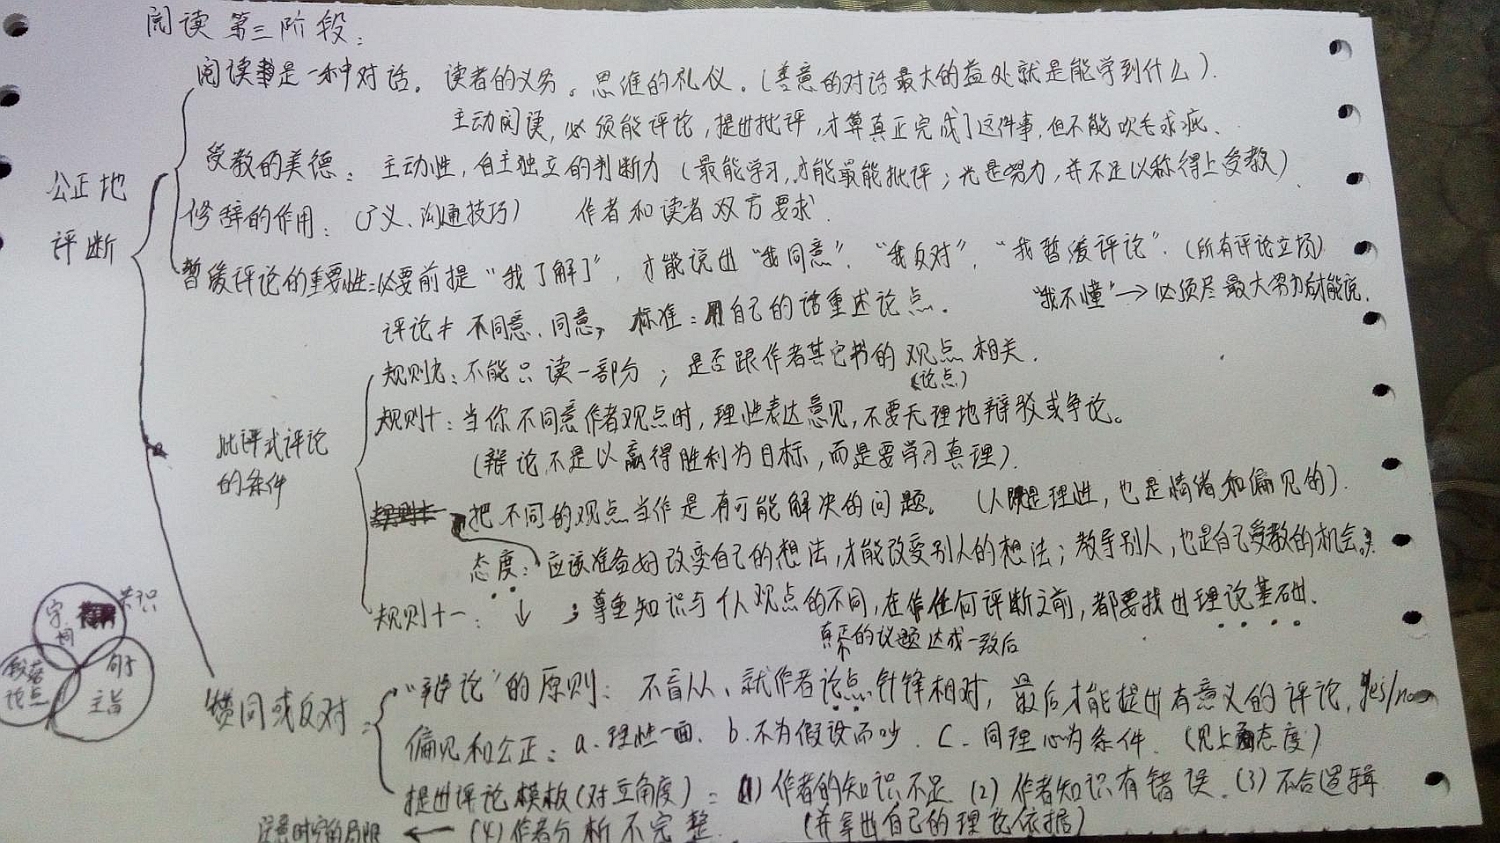 阅读第三阶段:
阅读是一种对话。读者的义务。思维的礼仪。(善意的对话最大的益处就是能学到什么).
主动阅读,必须能评论,提出批评,才算真正完成了这件事,但不能吹毛求疵.
受教的美德: 主动性,自主独立的判断力(最能学习,才能最能批评;光是努力,并不足以称得上受教)
公正地
评断
修辞的作用:(了义、沟通技巧) 作者和读者双方要求.
暂缓评论的重要性:必要前提“我了解了”,才能说出“我同意”、“我反对”、“我暂缓评论”.(所有评论立场)
“我不懂”→必须尽最大努力后才能说.
评论≠不同意、同意, 标准:用自己的话重述论点.
规则九:不能只读一部分;是否跟作者其它书的观点相关.
(论点)
规则十:当你不同意作者观点时,理性表达意见,不要无理地辩驳或争论。
(辩论不是以赢得胜利为目标,而是要学习真理).
批评式评论
的条件
把不同的观点当作是有可能解决的问题。(人既是理性,也是情绪和偏见的).
态度:应该准备好改变自己的想法,才能改变别人的想法;教导别人,也是自己受教的机会。
规则十一: ↓ ;尊重知识与个人观点的不同,在作任何评断之前,都要找出理论基础.
真正的议题达成一致后
字词 共识
段落 论点
句子 主旨
赞同或反对
“辩论”的原则: 不盲从、就作者论点针锋相对,最后才能提出有意义的评论. yes/no
偏见和公正:a.理性一面. b.不为假设而吵. c.同理心为条件.(见上面态度)
提出评论模板(对立角度):(1)作者的知识不足 (2)作者知识有错误.(3)不合逻辑
注意时空的局限 ← (4)作者分析不完整. (并拿出自己的理论依据)